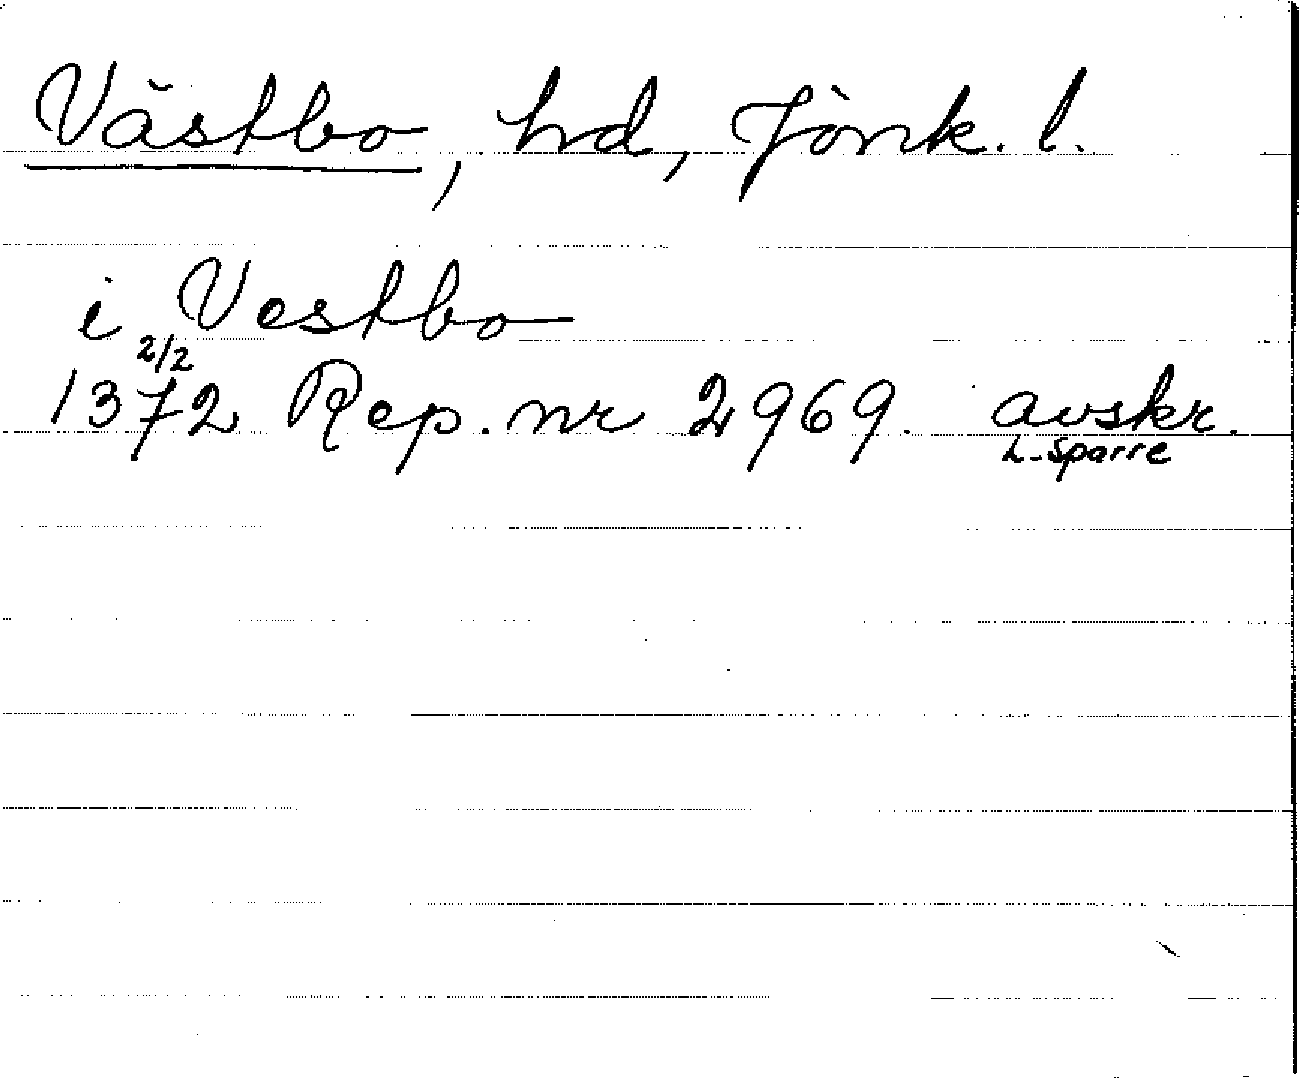 Västbo, hd, Jönk. l.
i Vestbo
2/2
1372 Rep. nr 2969. avskr.
L. Sparre